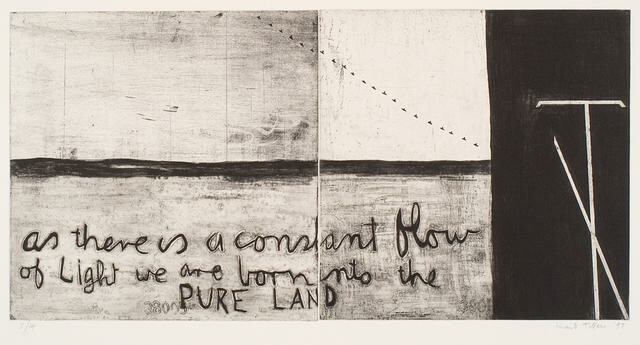 as there is a constant flow
of Light we are born into the
PURE LAND